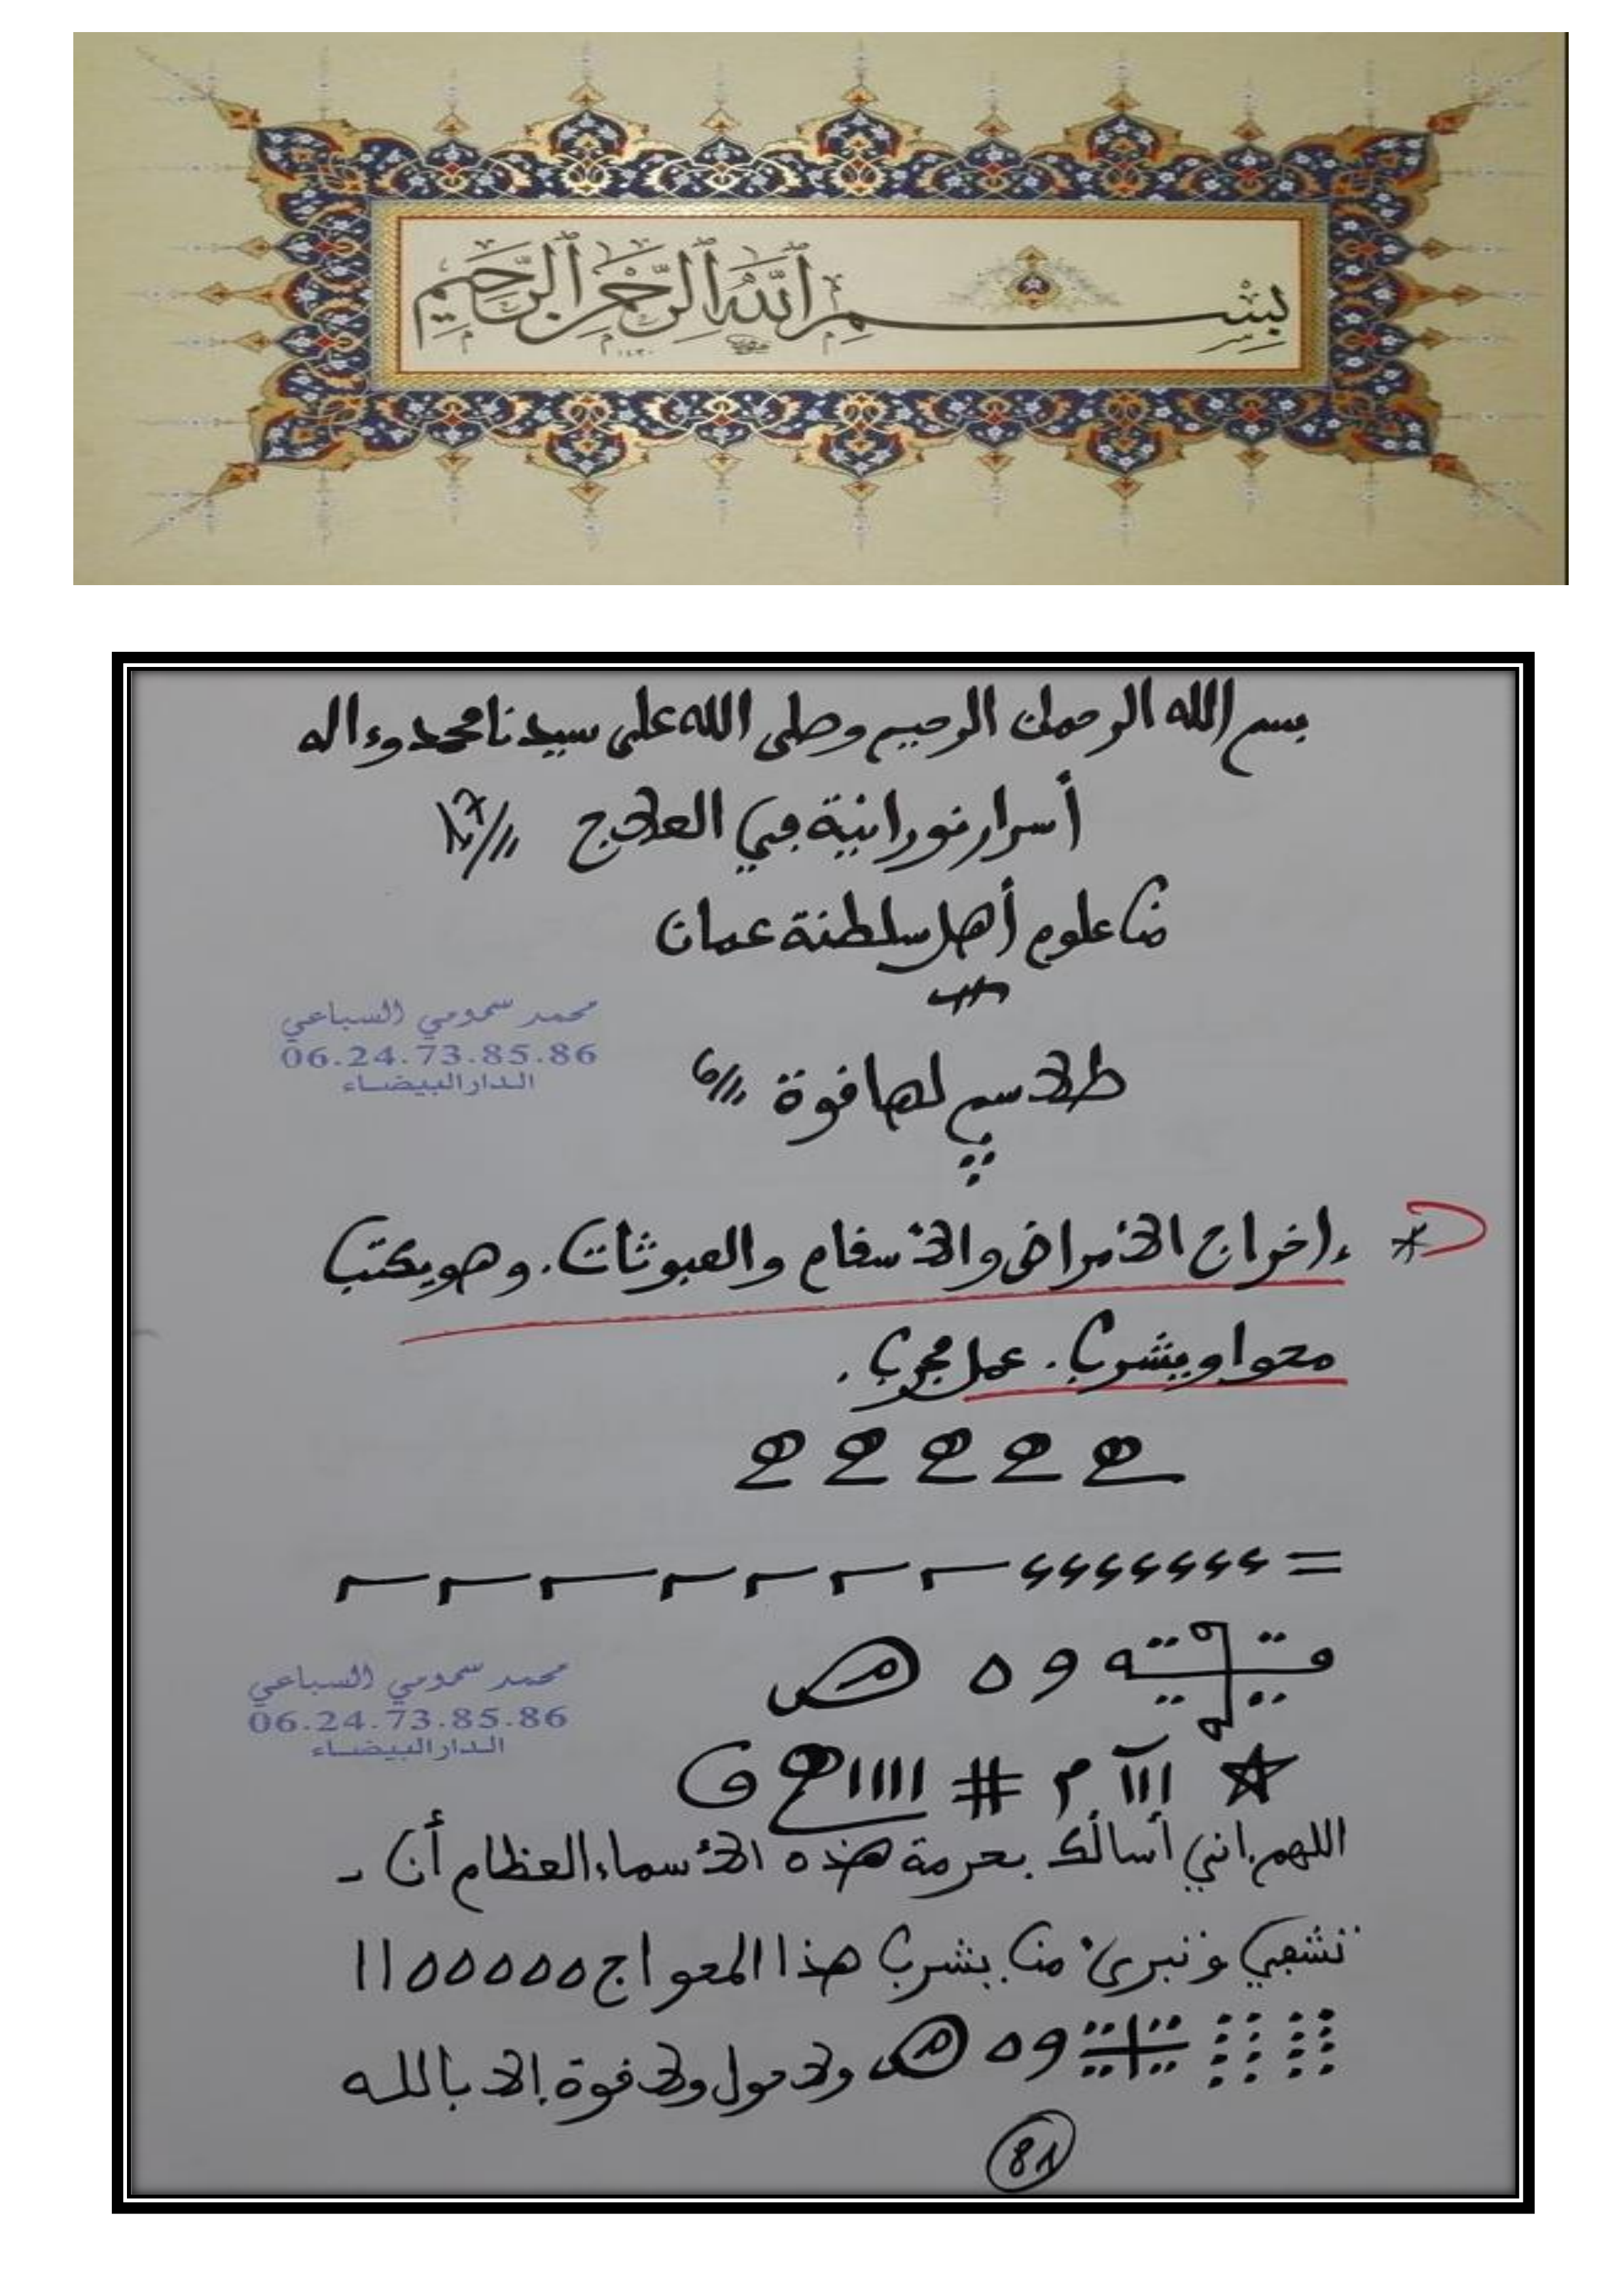 بسم الله الرحمن الرحيم
بسم الله الرحمان الرحيم وصلى الله على سيدنا محمد وءاله
أسرار نورانية في العلاج
من علوم أهل سلطنة عمان
محمد سمومي السباعي
06.24.73.85.86
الدار البيضاء
طلاسم لها قوة
إخراج الأمراض والأسقام والعبوثات. وهو يكتب
محوا ويشرب. عمل مجرب.
محمد سمومي السباعي
06.24.73.85.86
الدار البيضاء
اللهم إني أسألك بحرمة هذه الأسماء العظام أن
تشفي وتبرئ من يشرب هذا المحو اج ااهههههه
ولا حول ولا قوة إلا بالله
81